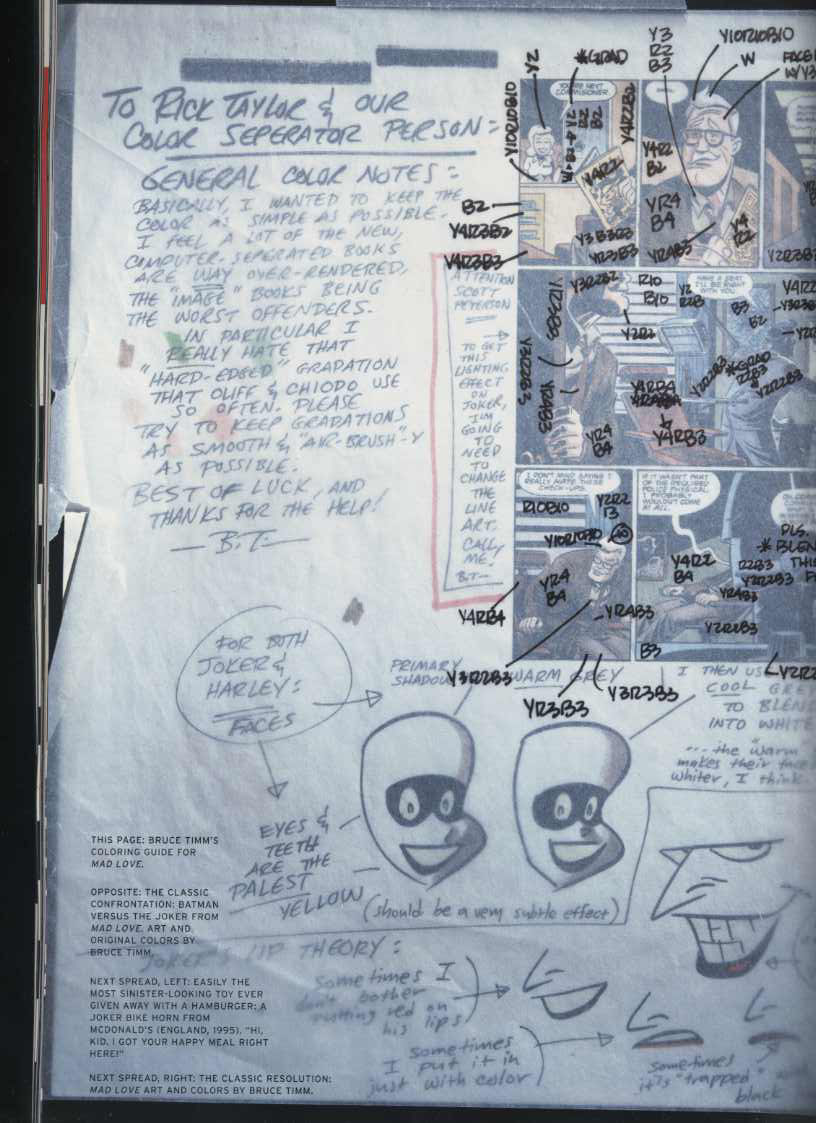 TO RICK TAYLOR & OUR
COLOR SEPERATOR PERSON:
GENERAL COLOR NOTES:
BASICALLY, I WANTED TO KEEP THE
COLOR AS SIMPLE AS POSSIBLE.
I FEEL A LOT OF THE NEW,
COMPUTER-SEPERATED BOOKS
ARE WAY OVER-RENDERED,
THE "IMAGE" BOOKS BEING
THE WORST OFFENDERS.
IN PARTICULAR I
REALLY HATE THAT
"HARD-EDGED" GRADATION
THAT OLIFF & CHIODO USE
SO OFTEN. PLEASE
TRY TO KEEP GRADATIONS
AS SMOOTH & "AIR-BRUSH"-Y
AS POSSIBLE.
BEST OF LUCK, AND
THANKS FOR THE HELP!
—B.T.—
ATTENTION
SCOTT
PETERSON
TO GET
THIS
LIGHTING
EFFECT
ON
JOKER,
I'M
GOING
TO
NEED
TO
CHANGE
THE
LINE
ART.
CALL
ME.
B.T.—
Y2
*GRAD
Y3
R2
B3
Y10R10B10
W
YOU'RE NEXT
COMMISSIONER.
Y4R2B2
Y4R2
Y4R2
B2
B2
Y4R3B2
Y4R3B3
Y3B3R3
YR3B3
YR4
B4
YR4B3
Y4
R2
Y2R3B3
Y3R2B2
R10
B10
Y2
R2B
HAVE A SEAT.
I'LL BE RIGHT
WITH YOU.
Y4R2
YR3B3
Y2R2
B3
B2
Y3R2B3
YR4B3
Y2R2B3
*GRAD
R2B3
Y2R2B3
YR4
B4
Y4RB4
Y4RB3
I DON'T MIND SAYING I
REALLY HATE THESE
CHECK-UPS.
IF IT WASN'T PART
OF THE REQUIRED
POLICE PHYSICAL,
I PROBABLY
WOULDN'T COME
AT ALL.
R10B10
Y2R2
B
Y10R10B10
YR4
B4
YR4B3
Y4RB4
Y4R2
B4
PLS.
*BLEN
THI
R2B3
Y2R2B3
YR4B3
Y2R2B3
B3
Y3R2B3
YR3B3
Y3R3B3
Y2R2
FOR BOTH
JOKER &
HARLEY:
FACES
PRIMARY
SHADOW
WARM GREY
I THEN US
COOL GREY
TO BLEN
INTO WHITE
...the "warm
makes their face
whiter, I think.
EYES &
TEETH
ARE THE
PALEST
YELLOW
(should be a very subtle effect)
JOKER'S LIP THEORY:
Sometimes I
don't bother
putting red on
his lips
sometimes
I put it in
just with color
sometimes
it's "trapped"
black
THIS PAGE: BRUCE TIMM'S
COLORING GUIDE FOR
MAD LOVE.
OPPOSITE: THE CLASSIC
CONFRONTATION: BATMAN
VERSUS THE JOKER FROM
MAD LOVE. ART AND
ORIGINAL COLORS BY
BRUCE TIMM.
NEXT SPREAD, LEFT: EASILY THE
MOST SINISTER-LOOKING TOY EVER
GIVEN AWAY WITH A HAMBURGER: A
JOKER BIKE HORN FROM
MCDONALD'S (ENGLAND, 1995). "HI,
KID. I GOT YOUR HAPPY MEAL RIGHT
HERE!"
NEXT SPREAD, RIGHT: THE CLASSIC RESOLUTION:
MAD LOVE ART AND COLORS BY BRUCE TIMM.